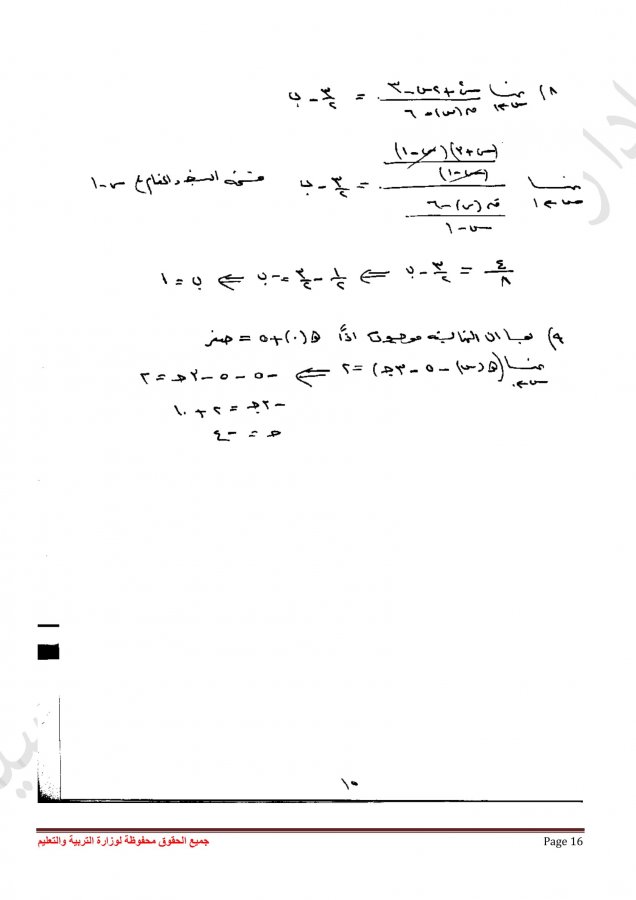 ٨) نهـــا س٢ + ٢س - ٣ / ق(س) - ٦ = ٣/٢ - ب
س←١
نهـــا (س+٣)(س-١) / (س-١) / ق(س) - ٦ / س-١ = ٣/٢ - ب
س←١
٤/٨ = ٣/٢ - ب ⇐ ١/٢ - ٣/٢ = -ب ⇐ ب = ١
٩) بما ان النهاية موجودة اذاً هـ(٠) + ٥ = صفر
نهـــا (هـ(س) - ٥ - ٣جـ) = ٢ ⇐ -٥ - ٥ - ٣جـ = ٢
س←٠
-٣جـ = ٢ + ١٠
جـ = -٤
١٥
جميع الحقوق محفوظة لوزارة التربية والتعليم
Page 16